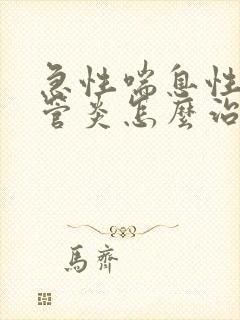 急性喘息性
管炎怎麼治
馬齊